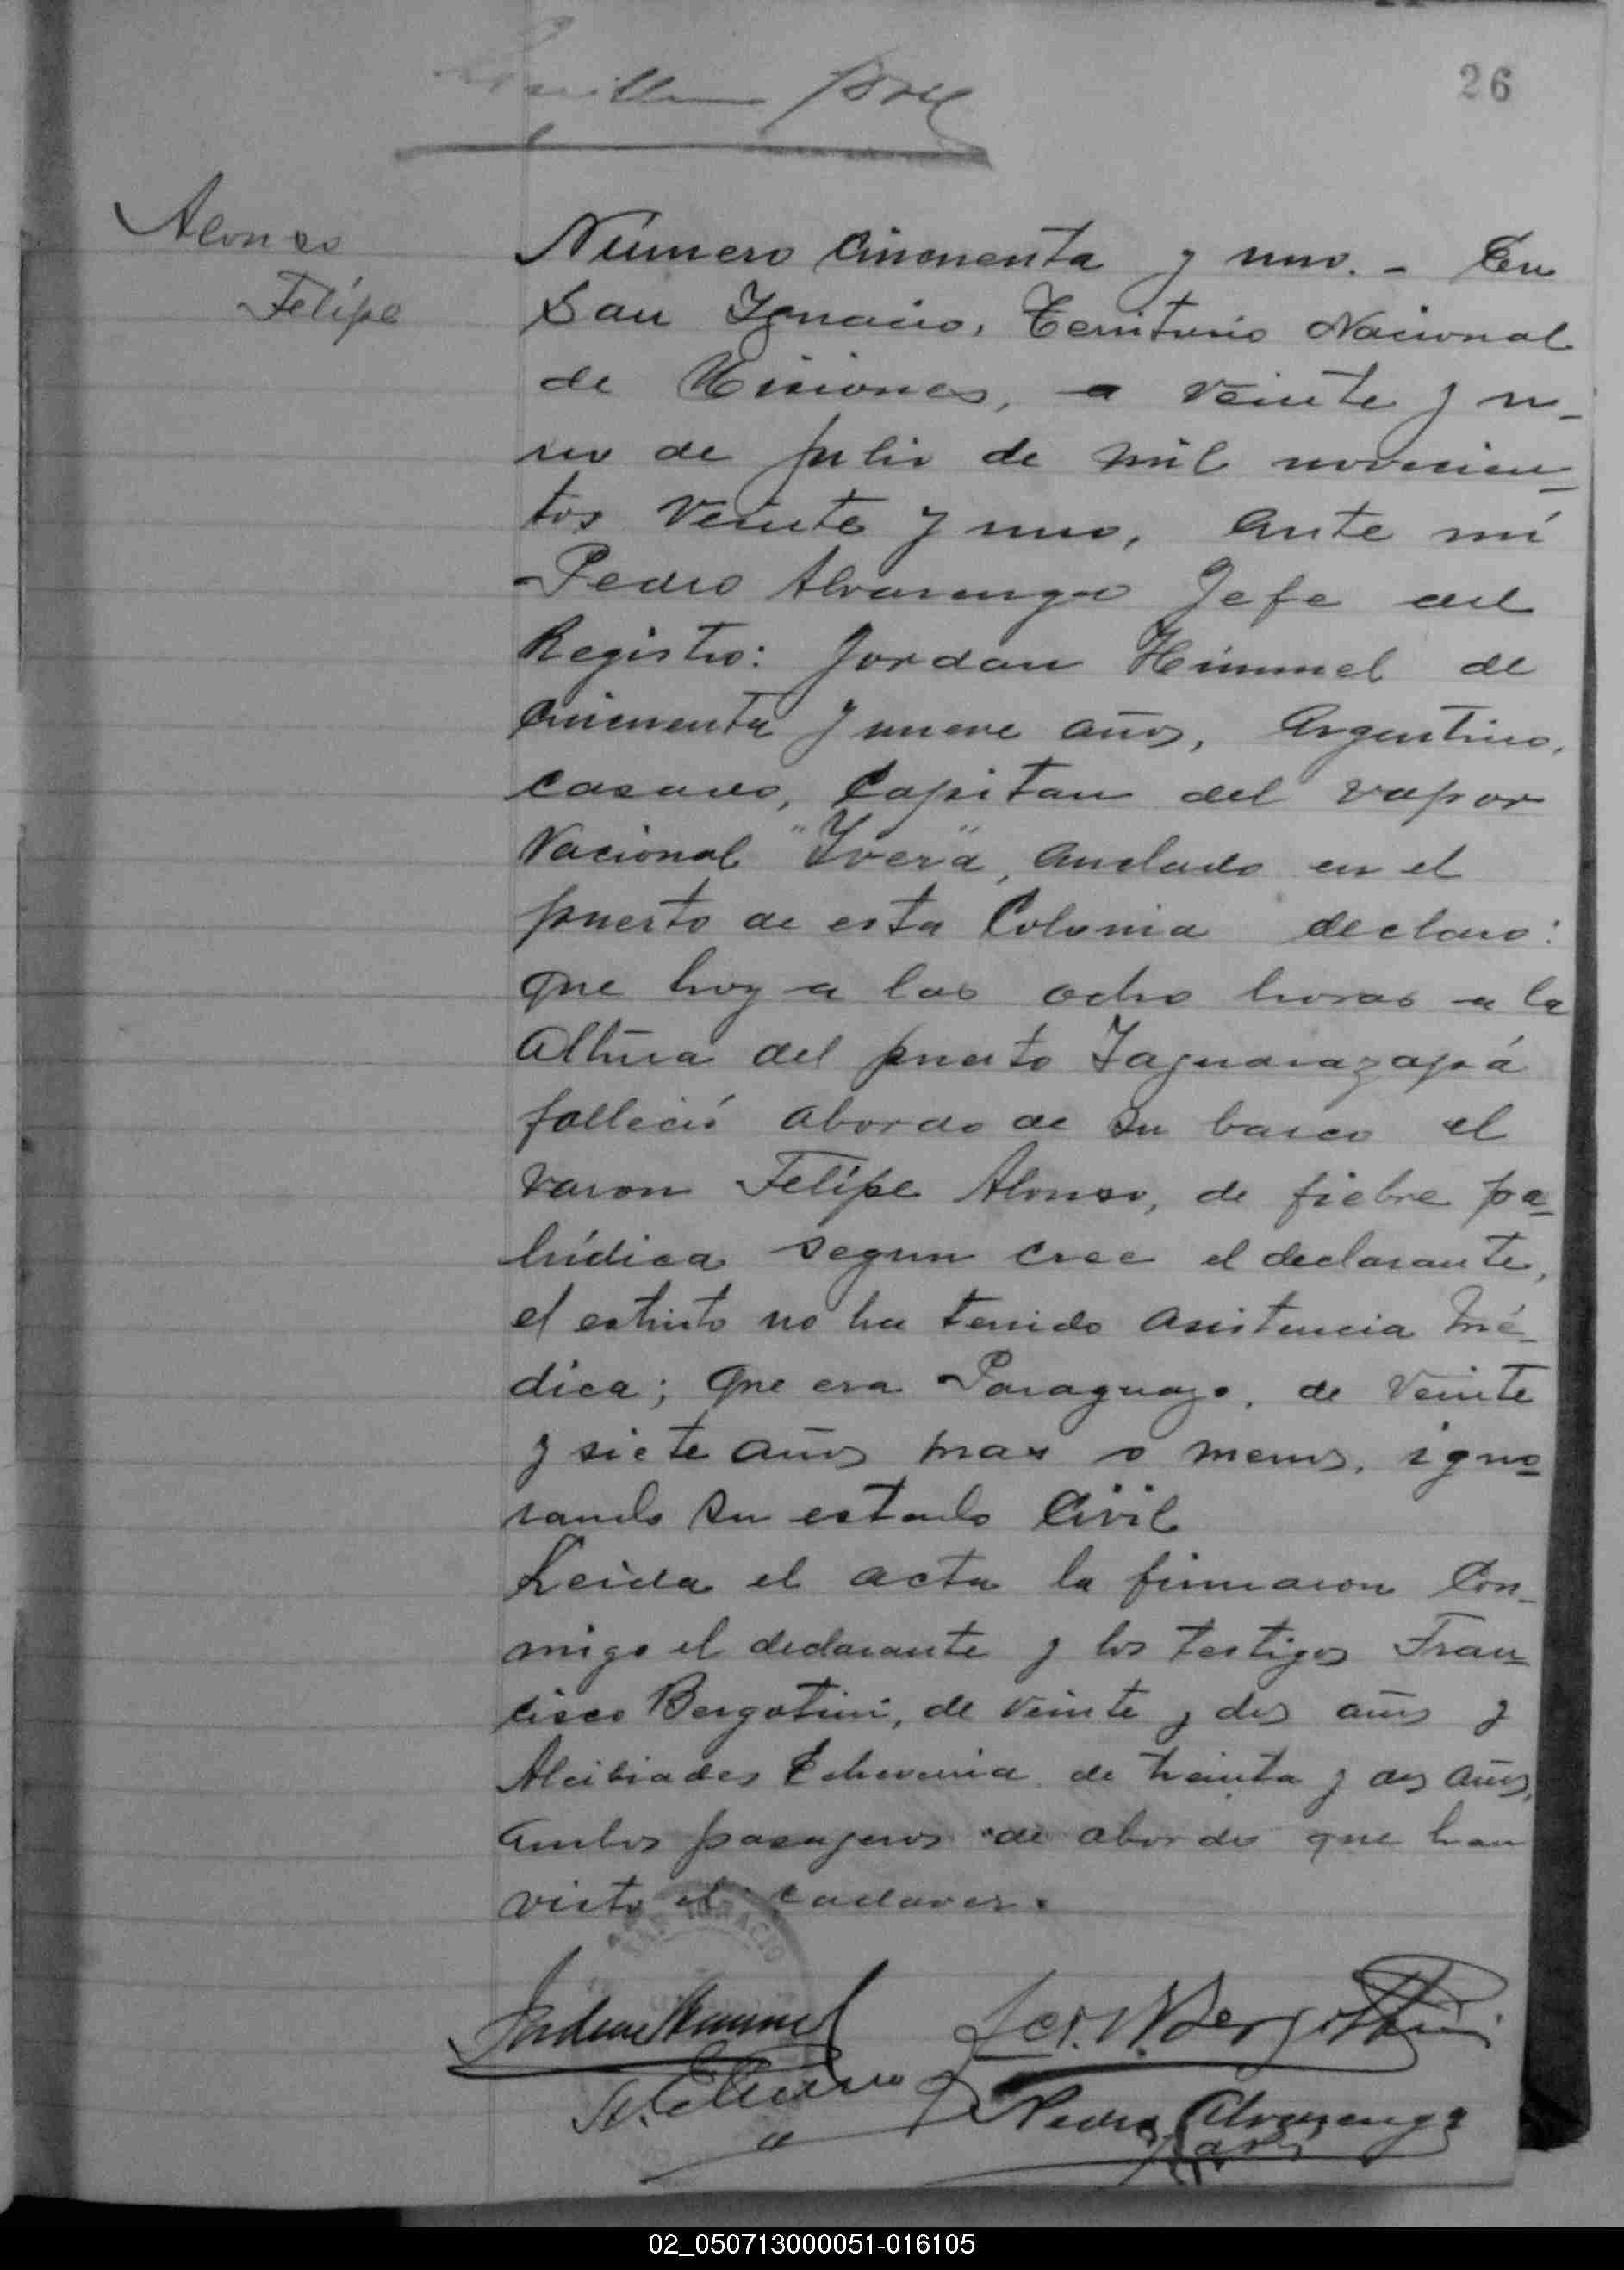 26
Alonso
Felípe
Número Cincuenta y uno. - En
San Ignacio, Territorio Nacional
de Misiones, a veinte y u-
no de Julio de mil novecien-
tos veinte y uno, ante mí
Pedro Alvarenga Jefe del
Registro: Jordan Himmel de
cincuenta y nueve años, Argentino,
casado, Capitan del vapor
Nacional "Iverá", anclado en el
puerto de esta Colonia declaro:
que hoy a las ocho horas a la
altura del puerto Yaguarazapá
falleció abordo de su barco el
varon Felípe Alonso, de fiebre pa-
lúdica segun cree el declarante,
el estinto no ha tenido asistencia mé-
dica; que era Paraguayo, de veinte
y siete años mas o menos, igno-
rando su estado civil
Leida el acta la firmaron con-
migo el declarante y los testigos Fran-
cisco Bergotini, de veinte y dos años y
Alcibiades Echeverria de treinta y dos años,
ambos pasajeros de abordo que han
visto el cadaver.
SAN IGNACIO
Jordan Himmel
Bergottini
Pedro Alvarenga
02_050713000051-016105